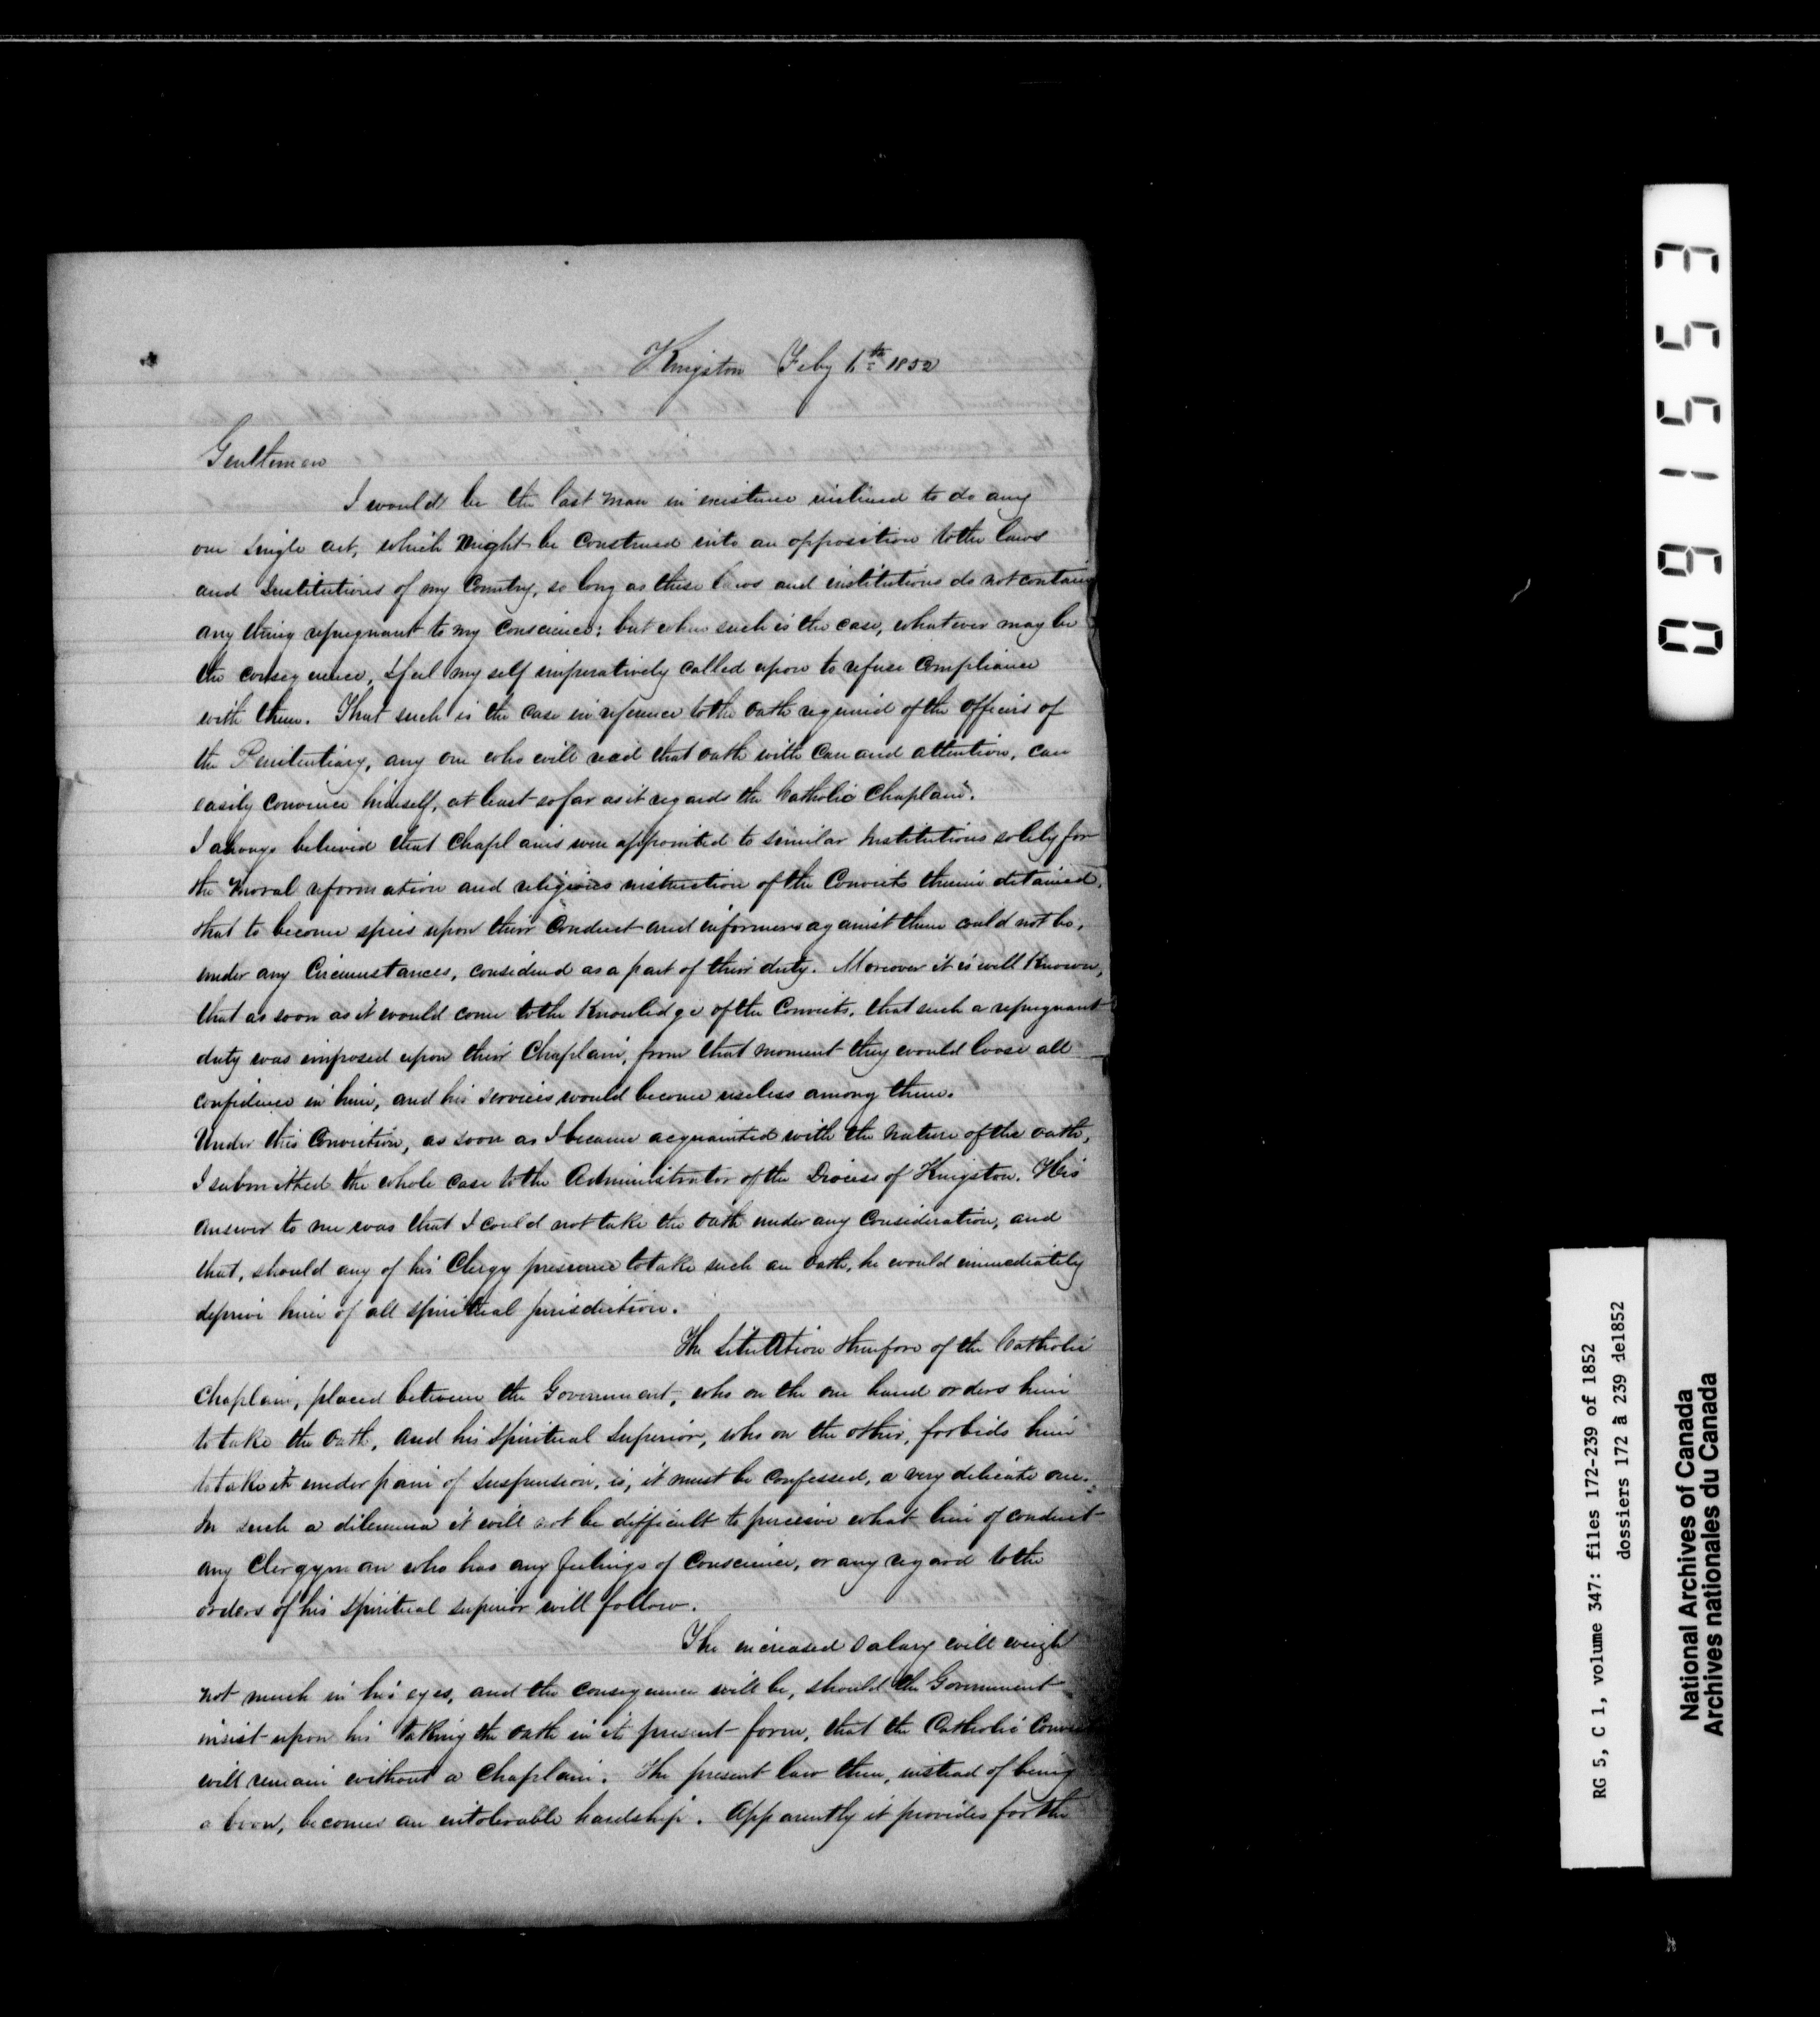 Kingston Feby 6th 1852
Gentlemen
I would be the last man in existence inclined to do any
one single act, which might be construed into an opposition to the laws
and Institutions of my Country, so long as these laws and institutions do not contain
any thing repugnant to my conscience: but when such is the case, whatever may be
the consequence, I feel my self imperatively called upon to refuse compliance
with them. That such is the case in refrence to the oath required of the officers of
the Penitentiary, any one who will read that oath with care and attention, can
easily convince himself, at least so far as it regards the Catholic Chaplain.
I always believed that Chaplains were appointed to similar Institutions solely for
the moral reformation and religious instruction of the Convicts therein detained,
that to become spies upon their conduct and informers against them could not be,
under any Circumstances, considered as a part of their duty. Moreover it is well known,
that as soon as it would come to the knowledge of the Convicts, that such a repugnant
duty was imposed upon their Chaplain, from that moment they would loose all
confidence in him, and his services would become useless among them.
Under this Conviction, as soon as I became acquainted with the nature of the oath,
I submitted the whole case to the Administrator of the Diocess of Kingston. His
answer to me was that I could not take the oath under any consideration, and
that, should any of his Clergy presume to take such an oath, he would immediately
deprive him of all spiritual jurisdiction.
The Situation therefore of the Catholic
Chaplain, placed between the Government, who on the one hand orders him
to take the oath, and his Spiritual Superior, who on the other, forbids him
to take it under pain of suspension, is, it must be confessed, a very delicate one.
In such a dilemma it will not be difficult to perceive what line of conduct
any Clergyman who has any feelings of conscience, or any regard to the
orders of his Spiritual superior will follow.
The increased salary will weigh
not much in his eyes, and the consequence will be, should the Government
insist upon his taking the oath in its present form, that the Catholic
will remain without a Chaplain. The present law then, instead of being
a boon, becomes an intolerable hardship. Apparently it provides for the
091553
RG 5, C 1, volume 347: files 172-239 of 1852
dossiers 172 à 239 de1852
National Archives of Canada
Archives nationales du Canada